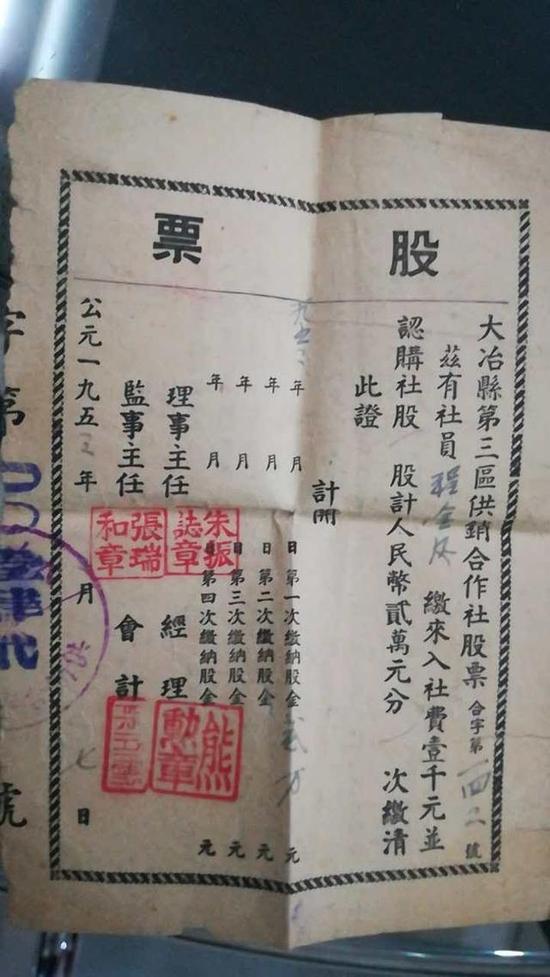 股票
大冶縣第三區供銷合作社股票 合字第 一四二 號
茲有社員程金 繳來入社費壹千元並
認購社股 股計人民幣貳萬元分 次繳清
此證
計開
年 月 日 第一次繳納股金 貳万 元
年 月 日 第二次繳納股金 元
年 月 日 第三次繳納股金 元
年 月 日 第四次繳納股金 元
理事主任 朱振誌章 經理 熊勳章
監事主任 張瑞和章 會計
公元一九五 年 月 七 日
字第 號